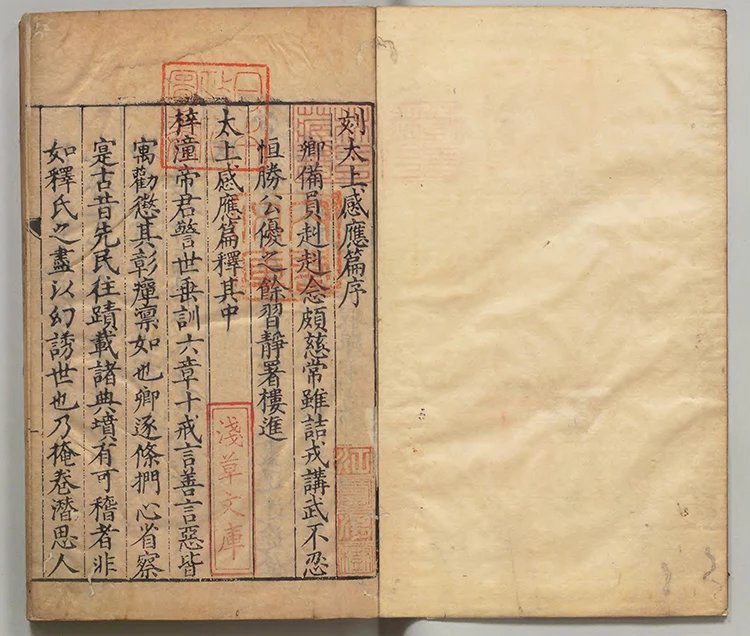 刻太上感應篇序
卿備員赳赳念頗慈常雖詰戎講武不忍
恒勝公優之餘習靜署樓進
太上感應篇釋其中
梓潼帝君警世垂訓六章十戒言善言惡皆
寓勸懲其彰癉凛如也卿逐條捫心省察
寔古昔先民往蹟載諸典墳有可稽者非
如釋氏之盡以幻誘世也乃掩卷潛思人
淺草文庫